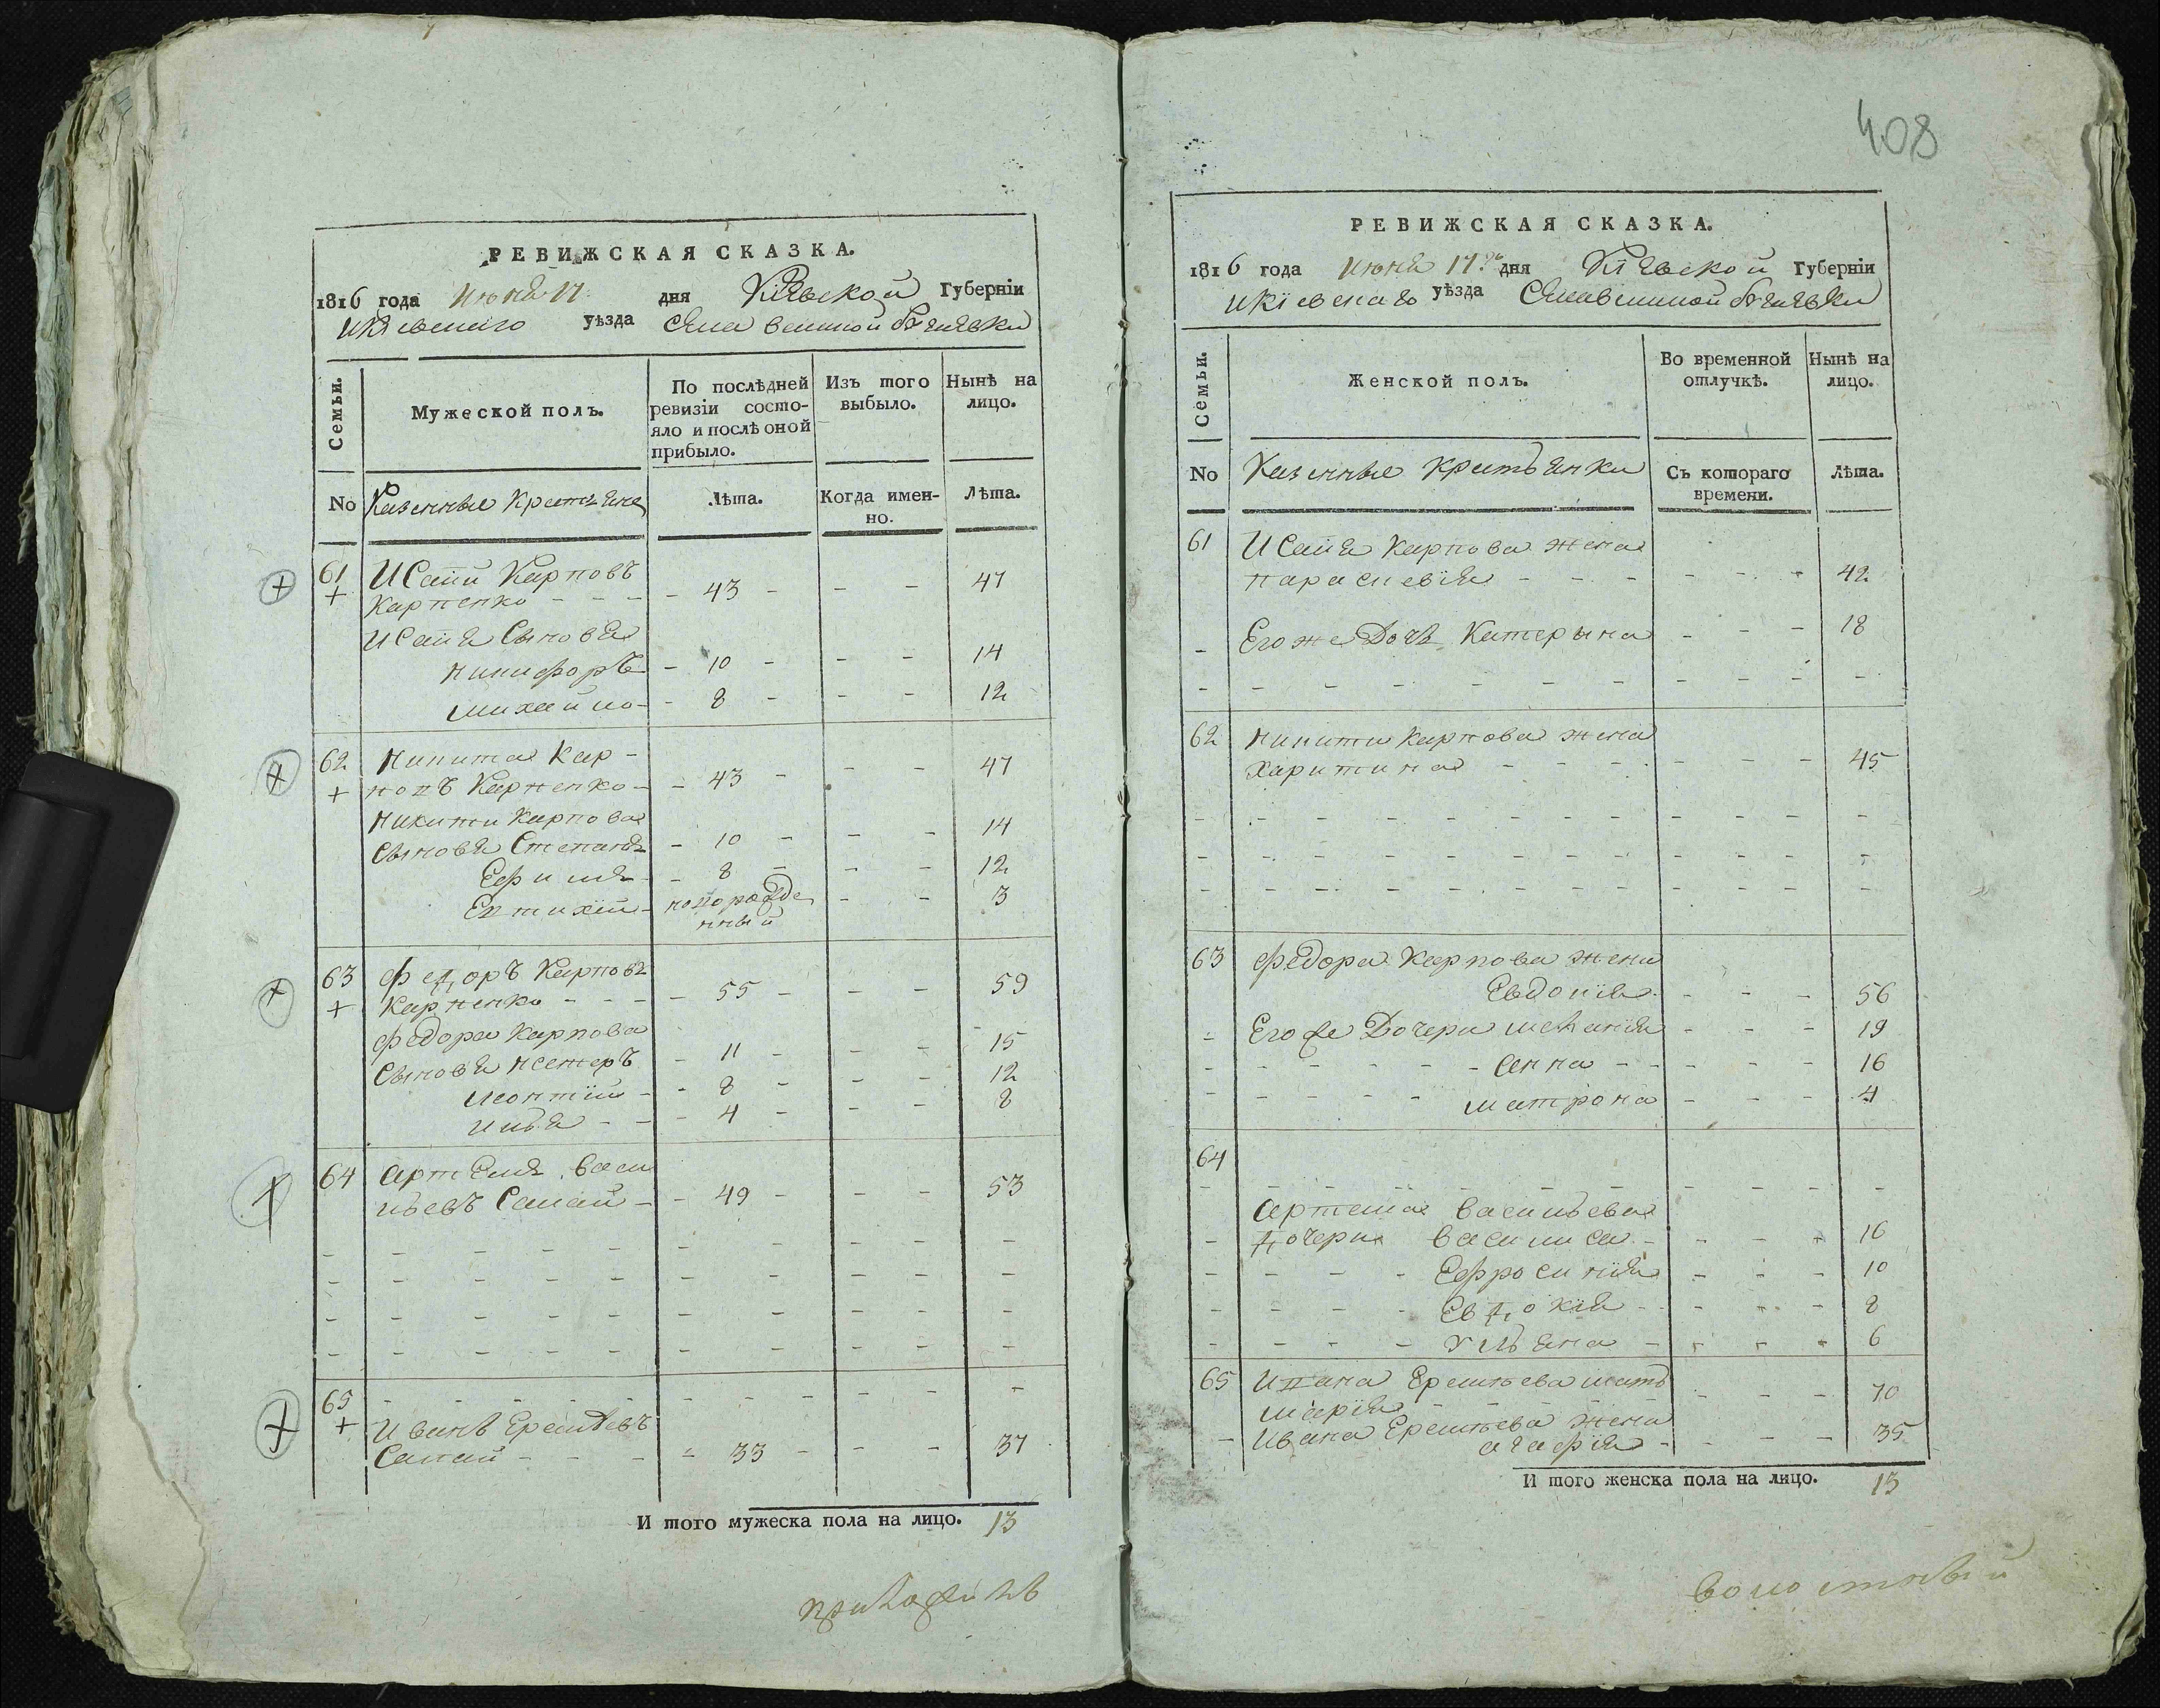 РЕВИЖСКАЯ СКАЗКА.
1816 года Июня 17 дня Кіевской Губерніи
И Кіевскаго уѣзда Села великой Бугаевки
Семьи.
Мужеской полъ.
По послѣдней ревизіи состояло и послѣ оной прибыло.
Изъ того выбыло.
Нынѣ на лицо.
No Казенные Крестьяне
Лѣта.
Когда именно.
Лѣта.
61 Исаій Карповъ
+ Карпенко - - - 43 - - - 47
Исаія Сыновья
Никифоръ - 10 - - - 14
Михайло - 8 - - - 12
62 Никита Кар-
+ повъ Карпенко - - 43 - - - 47
Никиты Карпова
Сыновья Степанъ - 10 - - - 14
Ефимъ - 8 - - - 12
Евтихій - новорожде - - 3
нный
63 Федоръ Карповъ
+ Карпенко - - - 55 - - - 59
Федора Карпова
Сыновья Нестеръ - 11 - - - 15
Леонтій - 8 - - - 12
Илья - - 4 - - - 8
64 Артемъ Васи
льевъ Сапай - - 49 - - - 53
65
+ Иванъ Еремѣевъ
Сапай - - - 33 - - - 37
И того мужеска пола на лицо. 13
408
РЕВИЖСКАЯ СКАЗКА.
1816 года Июня 17го дня Кіевской Губерніи
И Кіевскаго уѣзда Села великой Бугаевки
Семьи.
Женской полъ.
Во временной отлучкѣ.
Нынѣ на лицо.
No Казенные Крестьянки
Съ котораго времени.
Лѣта.
61 Исаія Карпова жена
Параскевія - - - - - - 42
Его же Дочь Катерына - - - 18
62 Никиты Карпова жена
Харитина - - - - - - 45
63 Федора Карпова жена
Евдокія - - - 56
Его же Дочери Меланія - - - 19
Анна - - - - - 16
Матрона - - - 4
64
Артема Васильева
Дочери Василиса - - - - 16
Ефросинія - - - 10
Евдокія - - - - 8
Ульяна - - - - 6
65 Ивана Еремѣева мать
Марія - - - 70
Ивана Еремѣева жена
Агафія - - - - 35
И того женска пола на лицо. 13
волостный